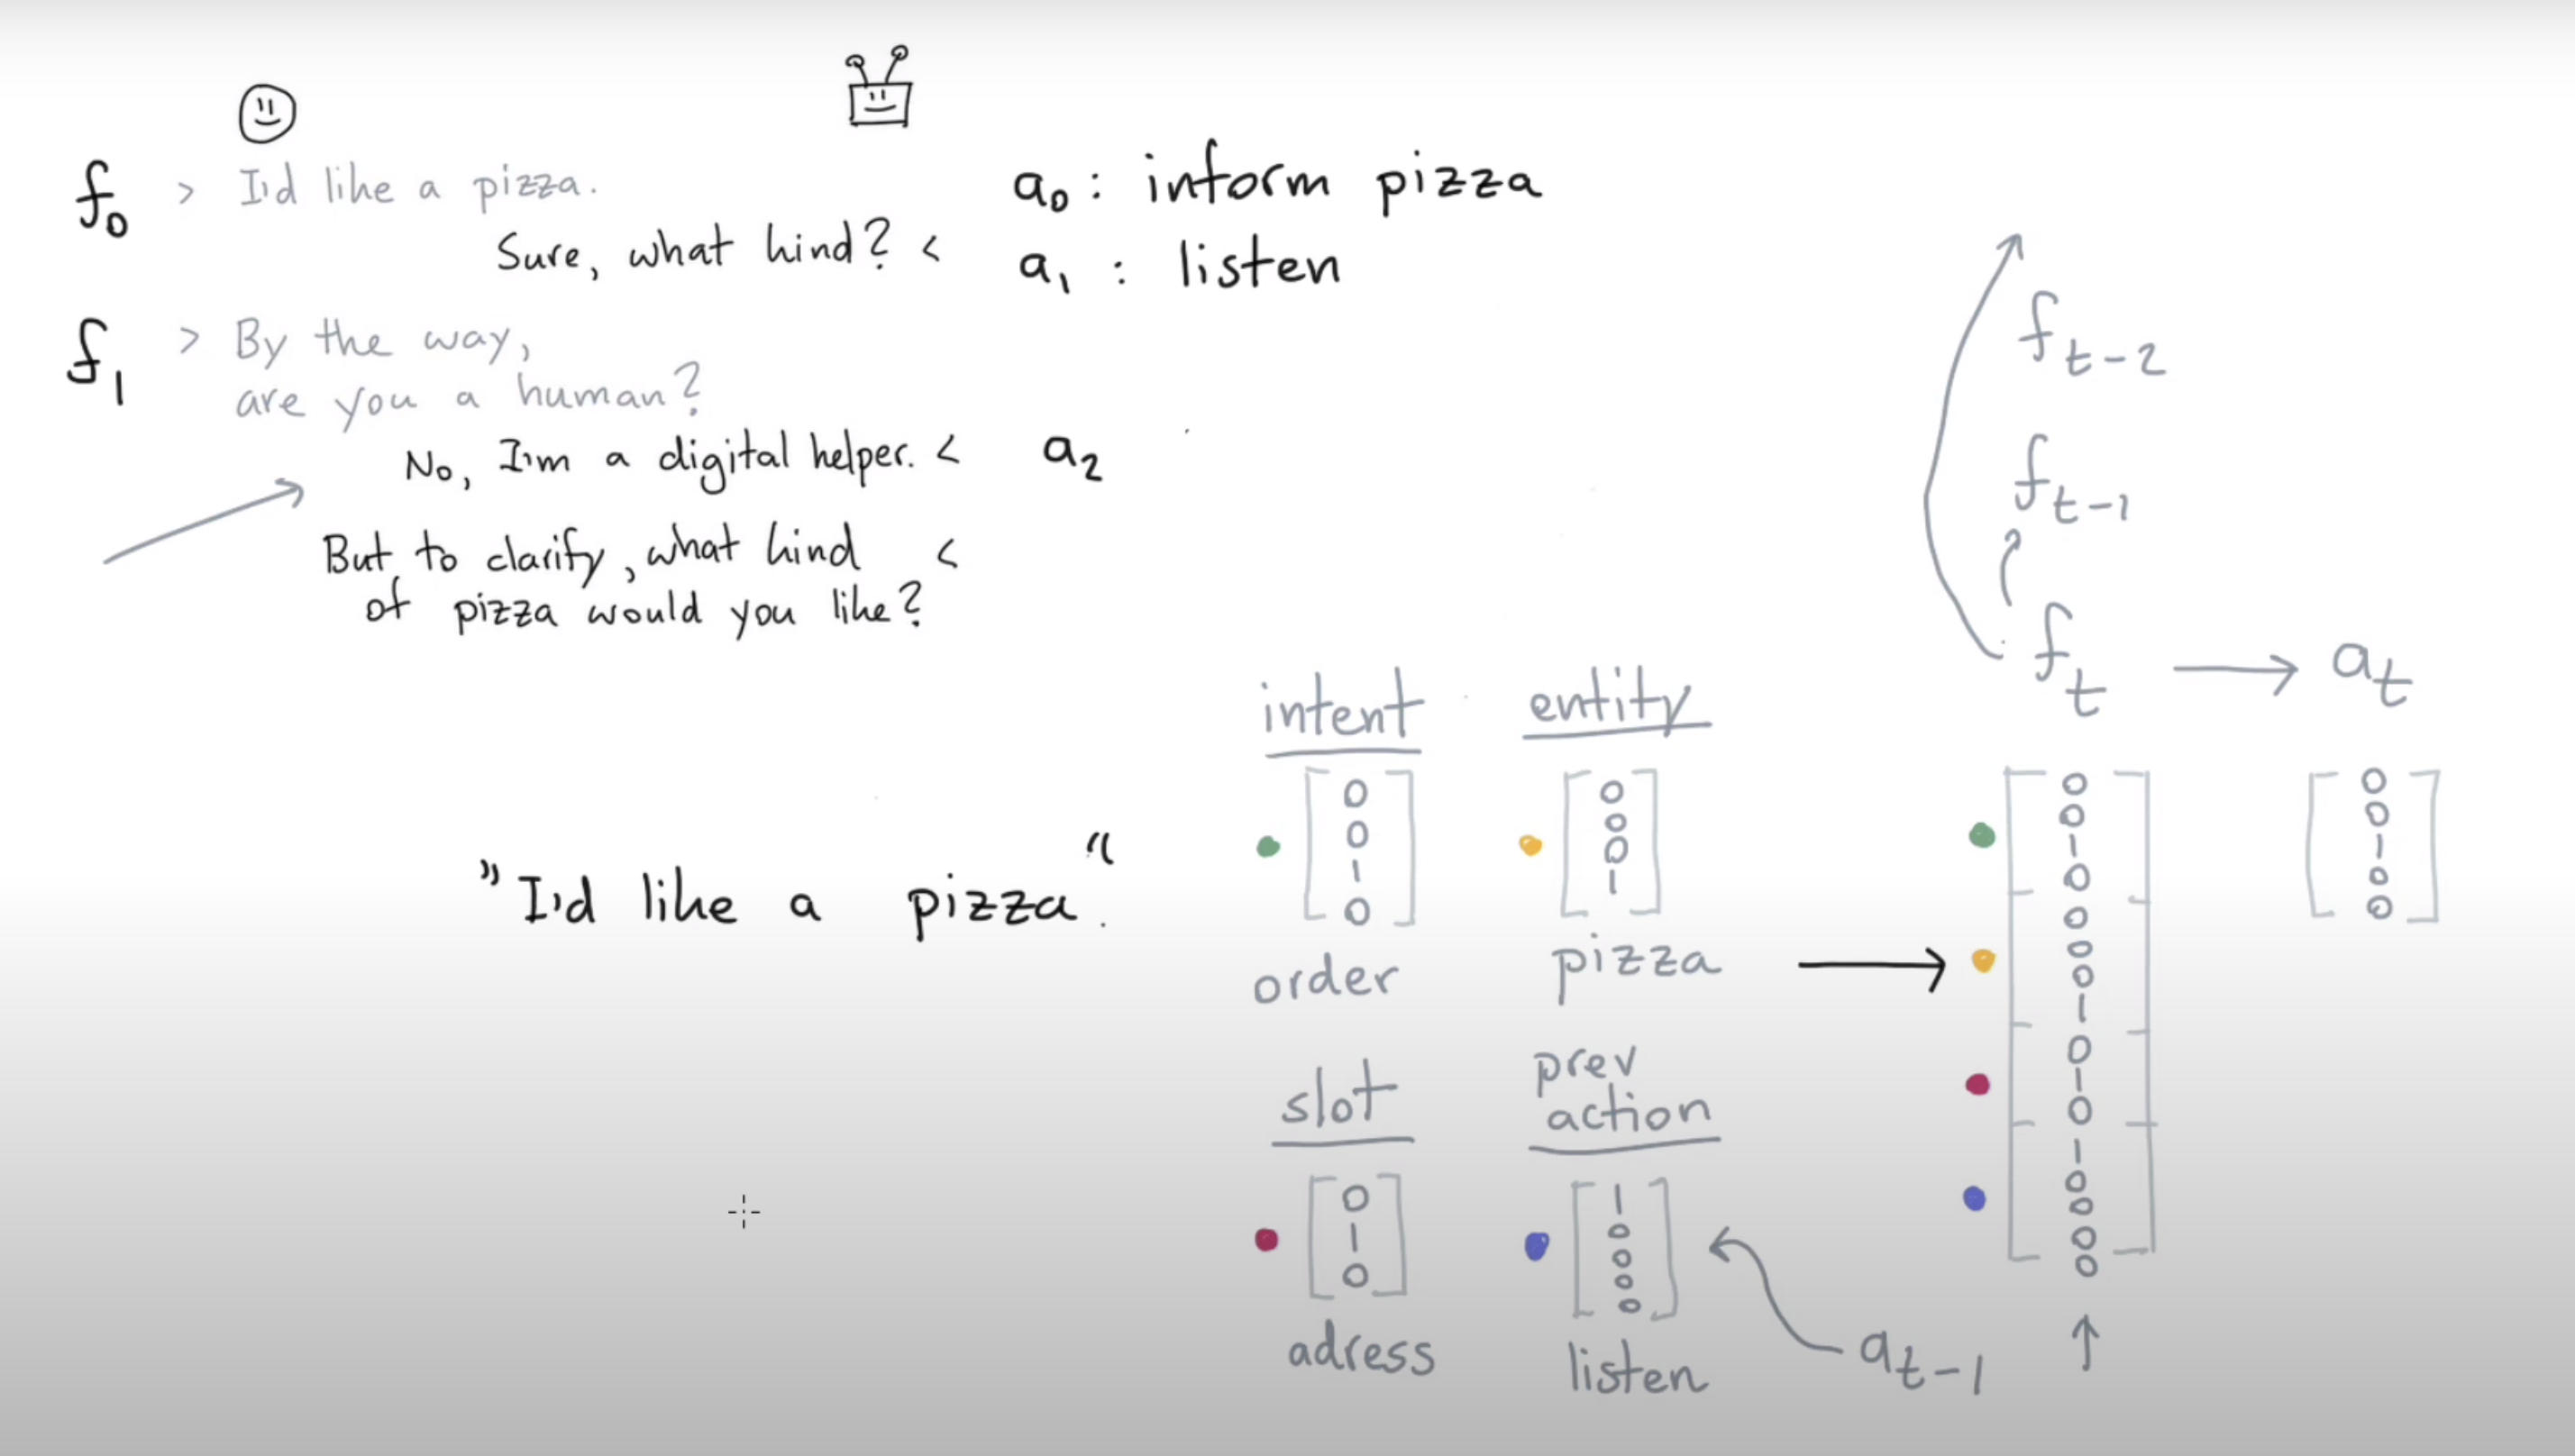 f0 > I'd like a pizza.
a0 : inform pizza
Sure, what kind? <
a1 : listen
f1 > By the way,
are you a human?
No, I'm a digital helper. < a2
But to clarify, what kind <
of pizza would you like?
f t-2
f t-1
f t → a t
"I'd like a pizza"
intent
0
0
1
0
order
entity
0
0
0
1
pizza
slot
0
1
0
adress
prev
action
1
0
0
0
0
listen
a t-1
0
0
1
0
0
0
0
1
0
1
0
1
0
0
0
0
0
0
1
0
0